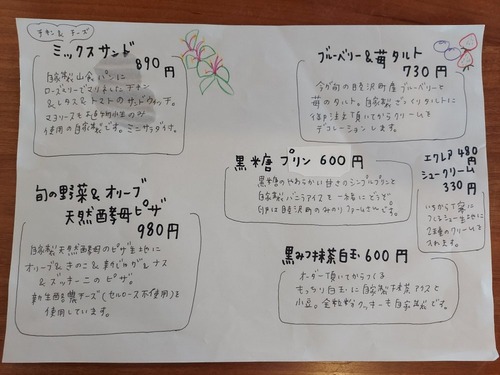 チキン & チーズ
ミックスサンド
890円
自家製山食パンに
ローズマリーでマリネしたチキン
&レタス&トマトのサンドウィッチ。
使用の自家製です。ミニサラダ付。
旬の野菜&オリーブ
天然酵母ピザ
980円
自家製天然酵母のピザ生地に
オリーブ&きのこ&
&ズッキーニのピザ。
チーズ(セルロース不使用)を
使用しています。
ブルーベリー&苺タルト
730円
今が旬の睦沢町産ブルーベリーと
苺のタルト。自家製ざっくりタルトに
御注文頂いてからクリームを
デコレーションします。
黒糖プリン 600円
黒糖のやわらかい甘さのシンプルプリンと
自家製バニラアイスを一緒にどうぞ
卵は睦沢町のみのりファームさんです。
エクレア 480円
シュークリーム
330円
いちから丁寧に
シュー生地に
2種のクリームを
入れます。
黒みつ抹茶白玉 600円
オーダー頂いてからつくる
もっちり白玉に自家製抹茶アイスと
小豆。全粒粉クッキーも自家製です。